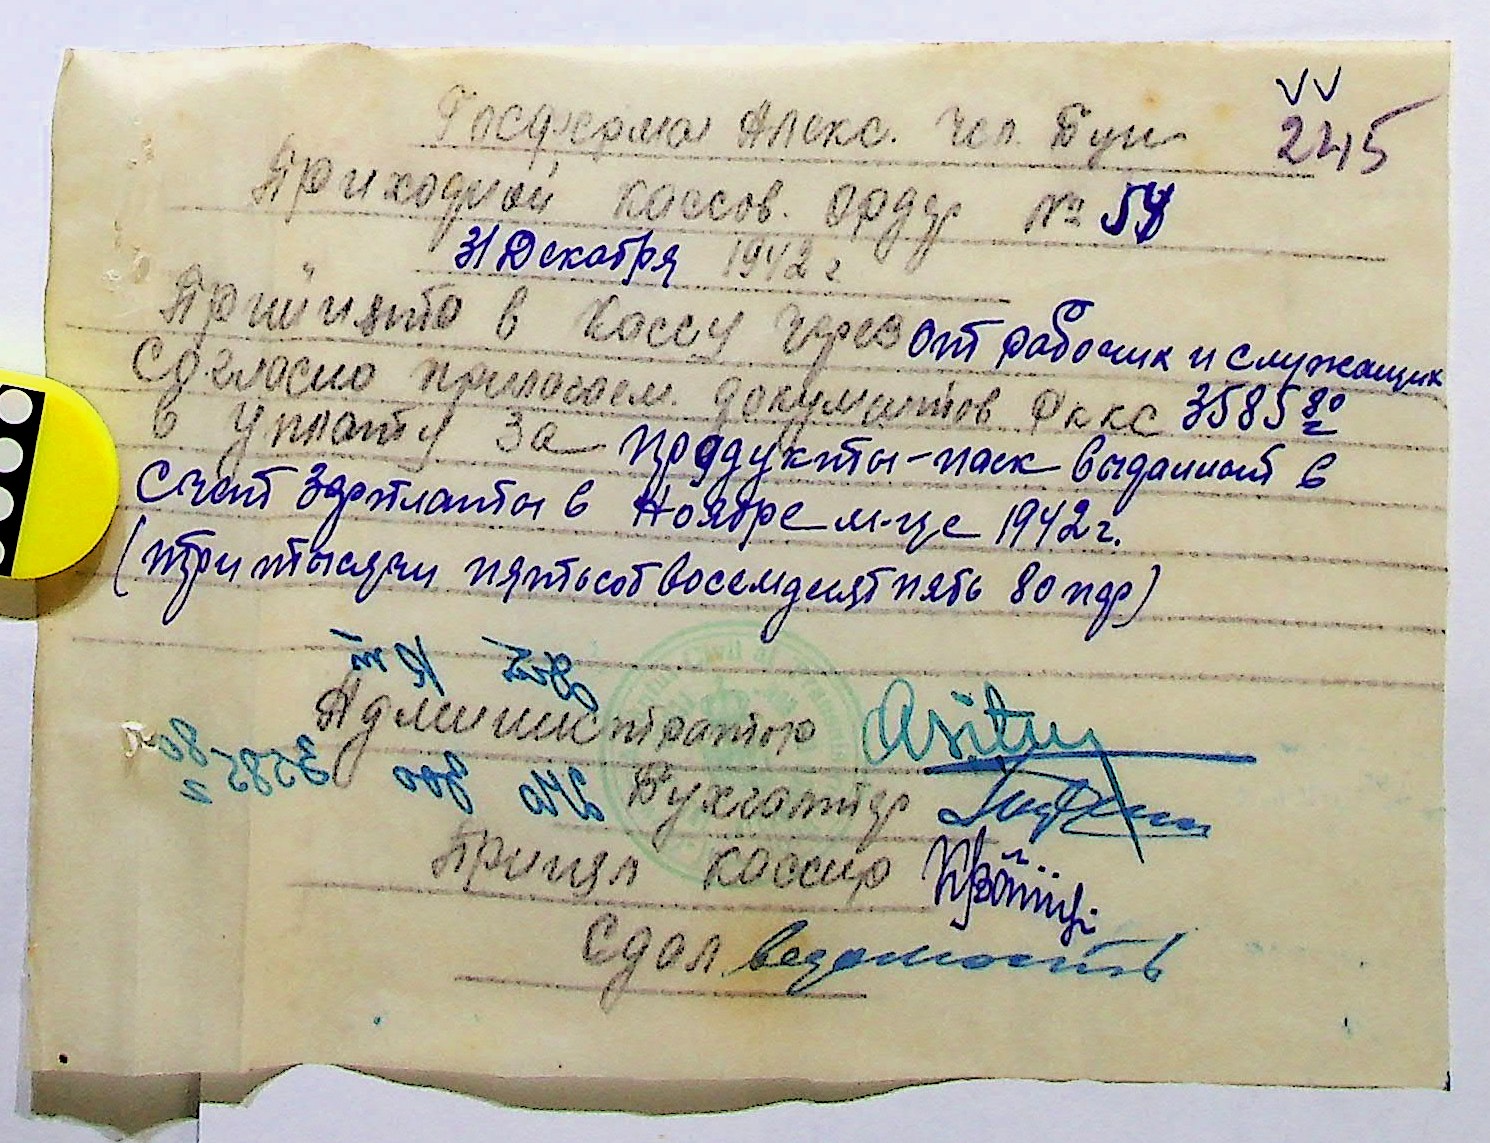 245
Госферма Алекс. Чсп. Бун
Приходной кассов. ордер № 54
31 Декабря 1942 г
Прийнято в кассу через от рабочих и служащих
Согласно прилагаем. документов Рккс 3585 80
в уплату за продукты-паек выданный в
счет зарплаты в Ноябре м-це 1942 г.
(три тысячи пятьсот восемдецят пять 80 пф)
Администратор
3585-80 240 Бухгалтер
Принял кассир
Сдал ведомость